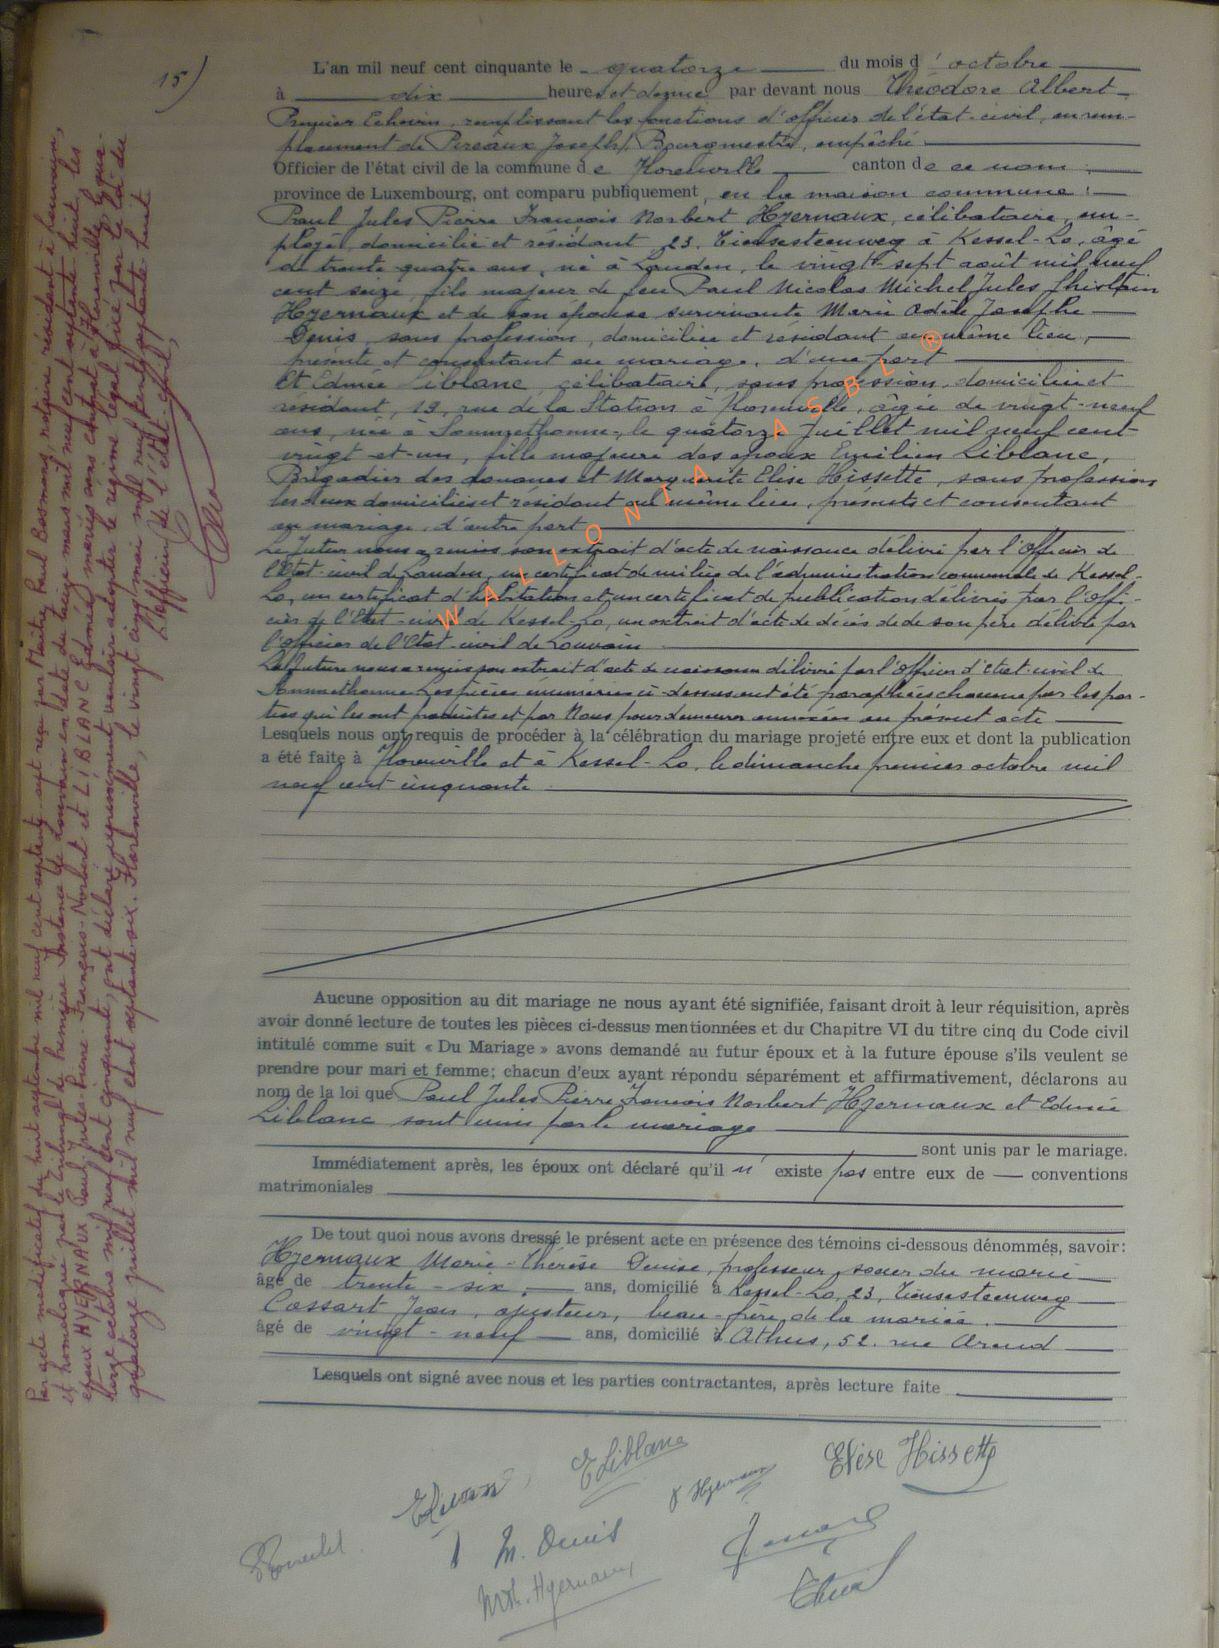 15)
L'an mil neuf cent cinquante le quatorze du mois d'octobre
à dix heures et demie par devant nous Théodore Albert
Premier Echevin, remplissant les fonctions d'officier de l'état-civil, en rem-
placement de Pireaux Joseph, Bourgmestre, empêché
Officier de l'état civil de la commune de Florenville canton de ce nom
province de Luxembourg, ont comparu publiquement, en la maison commune :
Paul Jules Pierre François Norbert Hyernaux, célibataire, em-
ployé, domicilié et résidant, 23, Tiensesteenweg à Kessel-Lo, âgé
de trente-quatre ans, né à Landen, le vingt-sept août mil neuf
cent seize, fils majeur de feu Paul Nicolas Michel Jules Ghislain
Hyernaux et de son épouse survivante Marie Odile Josephe
Denis, sans profession, domiciliée et résidant au même lieu,
présente et consentant au mariage, d'une part
Et Edmée Liblanc, célibataire, sans profession, domiciliée et
résidant, 19, rue de la Station à Florenville, âgée de vingt-neuf
ans, née à Sommethonne, le quatorze Juillet mil neuf cent
vingt-et-un, fille majeure des époux Emilien Liblanc,
Brigadier des douanes et Marguerite Elise Hissette, sans profession
les deux domiciliés et résidant au même lieu, présents et consentant
au mariage, d'autre part
Le futur nous a remis son extrait d'acte de naissance délivré par l'Officier de
l'Etat-civil de Landen, un certificat de milice de l'administration communale de Kessel-
Lo, un certificat d'habitation et un certificat de publication délivrés par l'offi-
cier de l'Etat-civil de Kessel-Lo, un extrait d'acte de décès de de son père délivré par
l'officier de l'Etat-civil de Louvain
La future nous a remis son extrait d'acte de naissance délivré par l'Officier d'Etat-civil de
Sommethonne. Les pièces énumérées ci-dessus ont été paraphées chacune par les par-
ties qui les ont produites et par Nous pour demeurer annexées au présent acte
Lesquels nous ont requis de procéder à la célébration du mariage projeté entre eux et dont la publication
a été faite à Florenville et à Kessel-Lo, le dimanche premier octobre mil
neuf cent cinquante
Aucune opposition au dit mariage ne nous ayant été signifiée, faisant droit à leur réquisition, après
avoir donné lecture de toutes les pièces ci-dessus mentionnées et du Chapitre VI du titre cinq du Code civil
intitulé comme suit « Du Mariage » avons demandé au futur époux et à la future épouse s'ils veulent se
prendre pour mari et femme; chacun d'eux ayant répondu séparément et affirmativement, déclarons au
nom de la loi que Paul Jules Pierre François Norbert Hyernaux et Edmée
Liblanc sont unis par le mariage
sont unis par le mariage.
Immédiatement après, les époux ont déclaré qu'il n' existe pas entre eux de conventions
matrimoniales
De tout quoi nous avons dressé le présent acte en présence des témoins ci-dessous dénommés, savoir:
Hyernaux Marie-Thérèse Denise, professeur, soeur du marié
âgé de trente-six, ans, domicilié à Kessel-Lo, 23, Tiensesteenweg
Cossart Jean, ajusteur, beau-frère de la mariée.
âgé de vingt-neuf ans, domicilié à Athus, 52. rue Arend
Lesquels ont signé avec nous et les parties contractantes, après lecture faite
E Liblanc
Elise Hissette
P Hyernaux
M. Denis
Mth. Hyernaux
Par acte modificatif du huit septembre mil neuf cent septante-sept reçu par Maître Paul Bosmans, notaire résident à Louvain,
et homologué par le Tribunal de Première Instance de Louvain en date du treize mars mil neuf cent septante-huit, les
époux HYERNAUX Paul-Jules-Pierre-François-Norbert et LIBLANC Edmée, mariés sans contrat à Florenville, le qua-
torze octobre mil neuf cent cinquante, ont déclaré expressément vouloir adopter le régime légal fixé par la loi du
quatorze juillet mil neuf cent septante-six. Florenville, le vingt-cinq mai mil neuf cent septante-huit
L'officier de l'état-civil,
WALLONIA ASBL ®